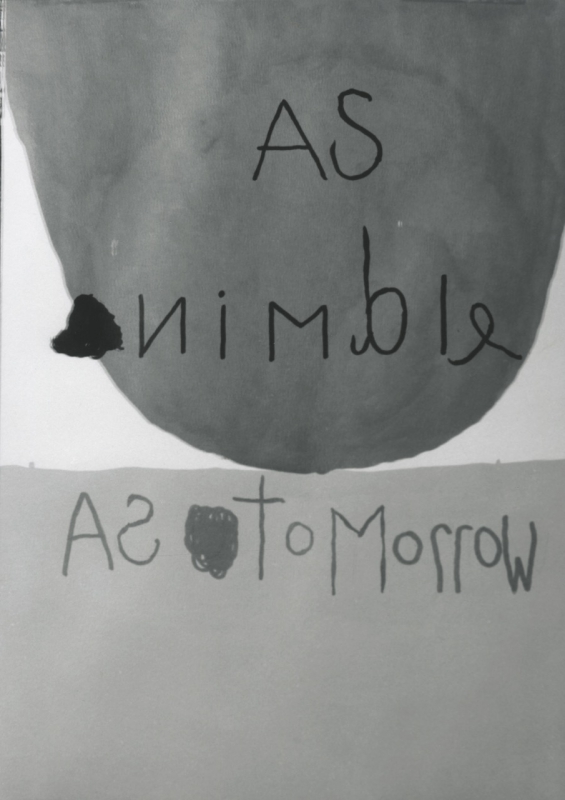 AS
nimble
AS toMorrow